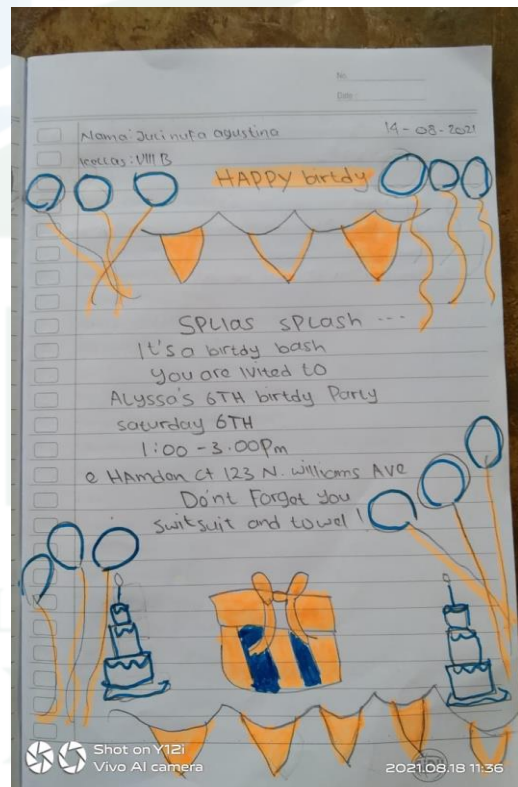 No
Date:
Nama: Juci nuta agustina 14-08-2021
kellas: VIII B
HAPPY birtdy
SPLIAS SPLASH ---
It's a birtdy bash
you are Ivited to
ALYssa's 6TH birtdy Party
saturday 6TH
1:00 - 3.00Pm
e HAmdon ct 123 N. williams AVe
Do'nt Forgot You
switsuit and towel!
Shot on Y12i
Vivo AI camera
2021.08.18 11:36